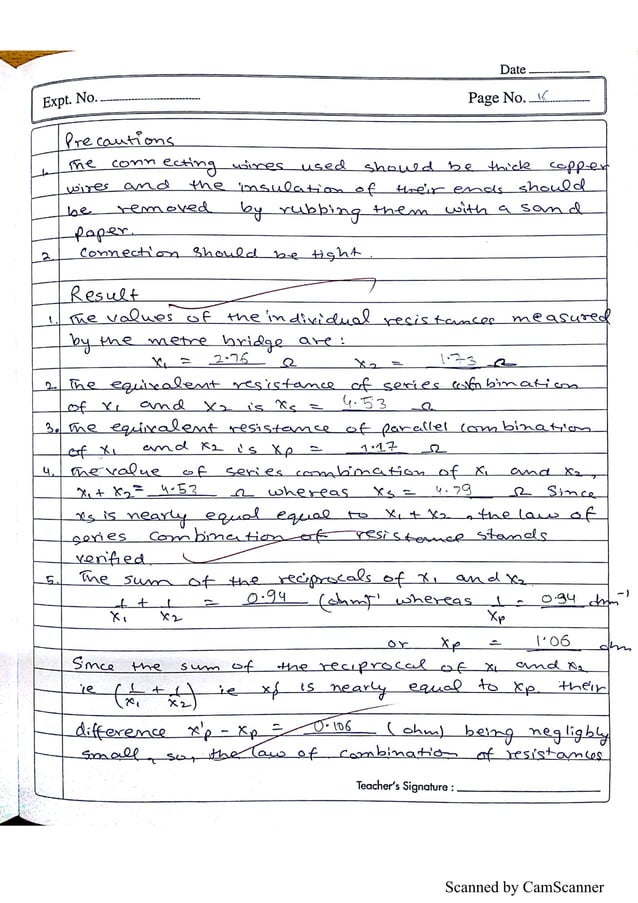 Date
Expt. No.
Page No. 15
Precautions
1. The connecting wires used should be thick copper
wires and the insulation of their ends should
be removed by rubbing them with a sand
paper.
2. Connection should be tight.
Result
1. The values of the individual resistances measured
by the metre bridge are:
x1 = 2.76 Ω x2 = 1.73 Ω
2. The equivalent resistance of series combination
of x1 and x2 is xs = 4.53 Ω
3. The equivalent resistance of parallel combination
of x1 and x2 is xp = 1.17 Ω
4. The value of series combination of x1 and x2,
x1 + x2 = 4.53 Ω whereas xs = 4.79 Ω Since
xs is nearly equal equal to x1 + x2, the law of
series combination of resistance stands
verified.
5. The sum of the reciprocals of x1 and x2
1/x1 + 1/x2 = 0.94 (ohm)-1 whereas 1/xp = 0.94 ohm-1
or xp = 1.06 ohm
Since the sum of the reciprocal of x1 and x2
ie (1/x1 + 1/x2) ie is nearly equal to xp. their
difference x'p - xp = 0.106 (ohm) being negligbly
small, so, the law of combination of resistances
Teacher's Signature :
Scanned by CamScanner